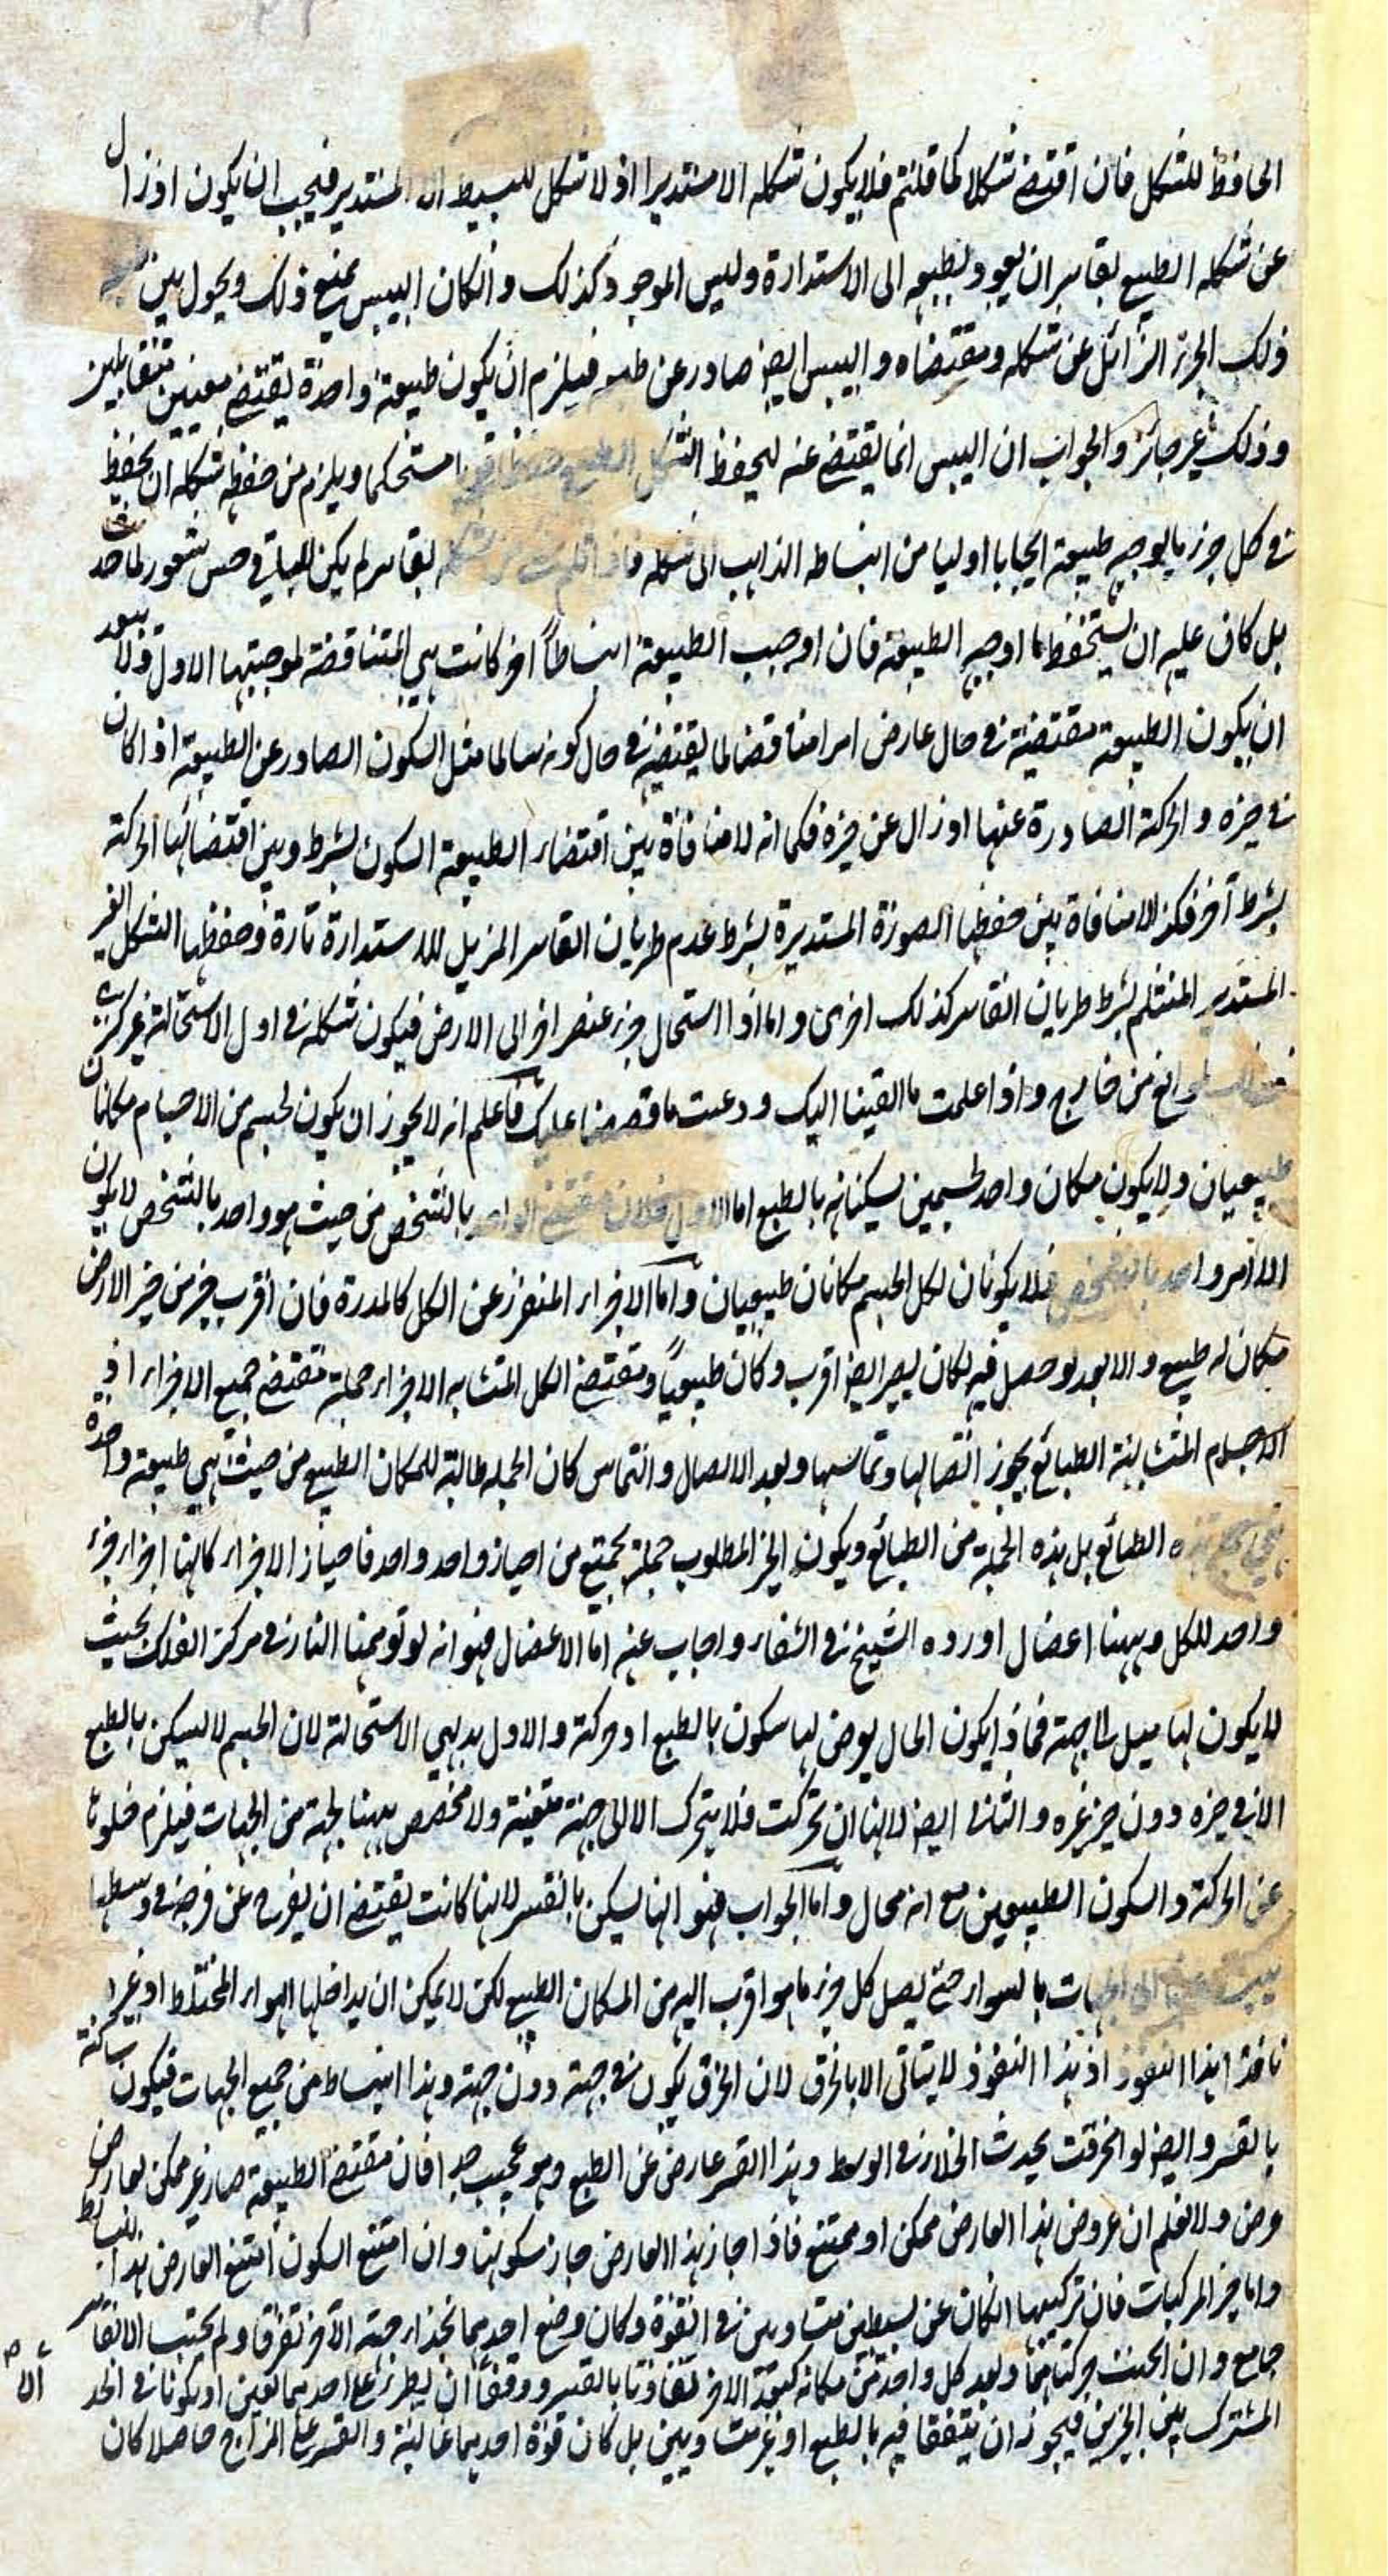 الحافظ للشكل فان اقتضى شكلا كما قلتم فلا يكون شكله الا مستديرا اذ لا شكل للبسيط الا المستدير فيجب ان يكون اذ زال
عن شكله الطبيعى بقاسر ان يعود بطبعه الى الاستدارة وليس الموجود كذلك وان كان اليبس يمنع ذلك ويحول بين
ذلك الجزء الزائل عن شكله ومقتضاه واليبس ايضا صادر عن طبعه فيلزم ان يكون طبيعة واحدة يقتضى معنيين متقابلين
وذلك غير جائز والجواب ان اليبس انما يقتضى عنه ليحفظ الشكل الطبيعى حفظا قويا مستحكما ويلزم من حفظه شكله ان يحفظ
فى كل جزء ما يوجبه طبيعة ايجابا اوليا من انبساطه الذاهب الى شكله فاذا انثلم شكله بقاسر لم يكن للباقى حس شعور لما حدث
بل كان عليه ان يستحفظ ما اوجبه الطبيعة فان اوجب الطبيعة انبساطا آخر كانت هى المتناقضة لموجبتها الاول ولا يبعد
ان يكون الطبيعة مقتضية فى حال عارض امرا مناقضا لما يقتضيه فى حال كونه سالما مثل السكون الصادر عن الطبيعة اذا كان
فى حيزه والحركة الصادرة عنها اذ زال عن حيزه فكما انه لا منافاة بين اقتضاء الطبيعة السكون بشرط وبين اقتضائها الحركة
بشرط آخر فكذا لا منافاة بين حفظها الصورة المستديرة بشرط عدم طريان القاسر المزيل للاستدارة تارة وحفظها الشكل الغير
المستدير المنثلم بشرط طريان القاسر كذلك اخرى واما اذا استحال جزء عنصر آخر الى الارض فيكون شكله فى اول الاستحالة غير كرى
لموانع من خارج واذا علمت ما القينا اليك ودعيت ما قصصنا عليك فاعلم انه لا يجوز ان يكون لجسم من الاجسام مكانان
طبيعيان ولا يكون مكان واحد لجسمين يسكنانه بالطبع اما الاول فلان مقتضى الواحد بالشخص من حيث هو واحد بالشخص لا يكون
الا امر واحد بالشخص فلا يكونان لكل الجسم مكانان طبيعيان واما الاجزاء المنفرز عن الكل كالمدرة فان اقرب حيز من حيز الارض
مكان له طبيعى والابعد لو حصل فيه لكان يصير ايضا اقرب وكان طبيعيا ومقتضى الكل المتشابه الاجزاء جملة مقتضى جميع الاجزاء اذ
الاجسام المتشابهة الطبائع يجوز اتصالها وتماسها وبعد الاتصال والتماس كان الجملة طالبة للمكان الطبيعى من حيث هى طبيعة واحدة
الطبائع بل هذه الجملة من الطبائع ويكون الحيز المطلوب جملة يجتمع من احياز واحد واحد فاحياز الاجزاء كانها اجزاء حيز
واحد للكل وههنا اعضال اورده الشيخ فى الشفاء واجاب عنه اما الاعضال فهو انه لو توهمنا النار فى مركز الفلك بحيث
لا يكون لها ميل الى جهة فماذا يكون الحال يعرض لها سكون بالطبع او حركة والاول بديهى الاستحالة لان الجسم لا يسكن بالطبع
الا فى حيزه دون حيز غيره والثانى ايضا لانها ان تحركت فلا يتحرك الا الى جهة متعينة ولا مخصص ههنا بجهة من الجهات فيلزم خلوها
عن الحركة والسكون الطبيعيين مع انه محال واما الجواب فهو انها يسكن بالقسر لانها كانت يقتضى ان يفرج عن فرجة فى وسطها
الى الجهات بالسواء حتى يصل كل جزء ما هو اقرب اليه من المكان الطبيعى لكن لا يمكن ان يداخلها الهواء المختلط او غيره
نافذا هذا النفوذ اذ هذا النفوذ لا يتأتى الا بالخرق لان الخرق يكون فى جهة دون جهة وهذا انبساط من جميع الجهات فيكون ساكنة
بالقسر وايضا لو انخرقت يحدث الخلاء فى الوسط وهذا القسر عارض عن الطبع وهو عجيب جدا فان مقتضى الطبيعة صار غير ممكن لعارض
عرض ولا نعلم ان عروض هذا العارض ممكن او ممتنع فاذا جاز هذا العارض جاز سكونها وان امتنع السكون امتنع العارض هذا
واما حيز المركبات فان تركيبها ان كان عن بسيطين متساويين فى القوة وكان وضع احدهما بحذاء جهة الآخر تفرقا ولم يجتمعا الا بقاسر
جامع وان اختلف حركتاهما وبعد كل واحد عن مكانه كبعد الآخر تفاوتا بالقسر ووقفا ان لم يطرء على احدهما معين او يكونا فى الحد
المشترك بين الحيزين فيجوز ان يتفقا فيه بالطبع او غير متساويين بل كان قوة احدهما غالبة والقسر على المزاج حاصلا كان